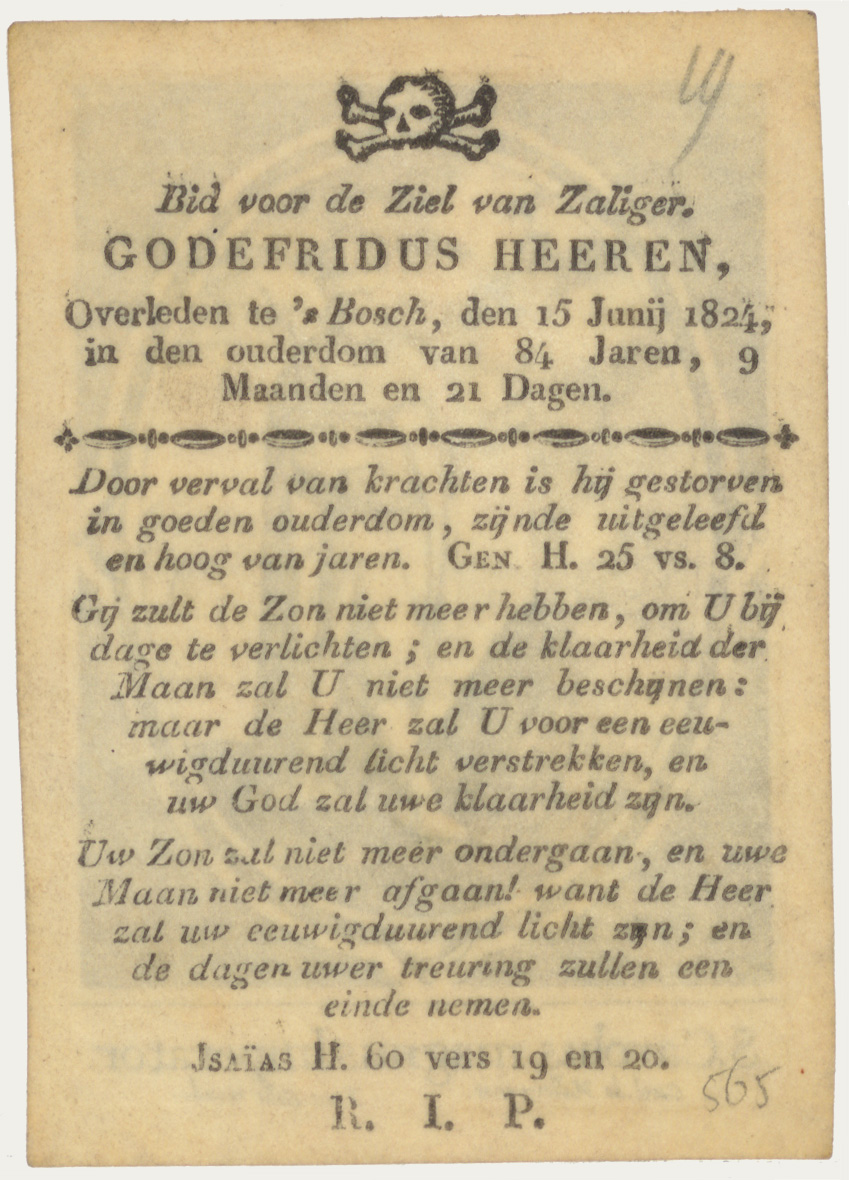 19
Bid voor de Ziel van Zaliger.
GODEFRIDUS HEEREN,
Overleden te 's Bosch, den 15 Junij 1824,
in den ouderdom van 84 Jaren, 9
Maanden en 21 Dagen.
Door verval van krachten is hij gestorven
in goeden ouderdom, zijnde uitgeleefd
en hoog van jaren. GEN H. 25 vs. 8.
Gij zult de Zon niet meer hebben, om U bij
dage te verlichten; en de klaarheid der
Maan zal U niet meer beschijnen:
maar de Heer zal U voor een eeu-
wigduurend licht verstrekken, en
uw God zal uwe klaarheid zijn.
Uw Zon zal niet meer ondergaan, en uwe
Maan niet meer afgaan! want de Heer
zal uw eeuwigduurend licht zijn; en
de dagen uwer treuring zullen een
einde nemen.
JSAÏAS H. 60 vers 19 en 20.
565
R. I. P.